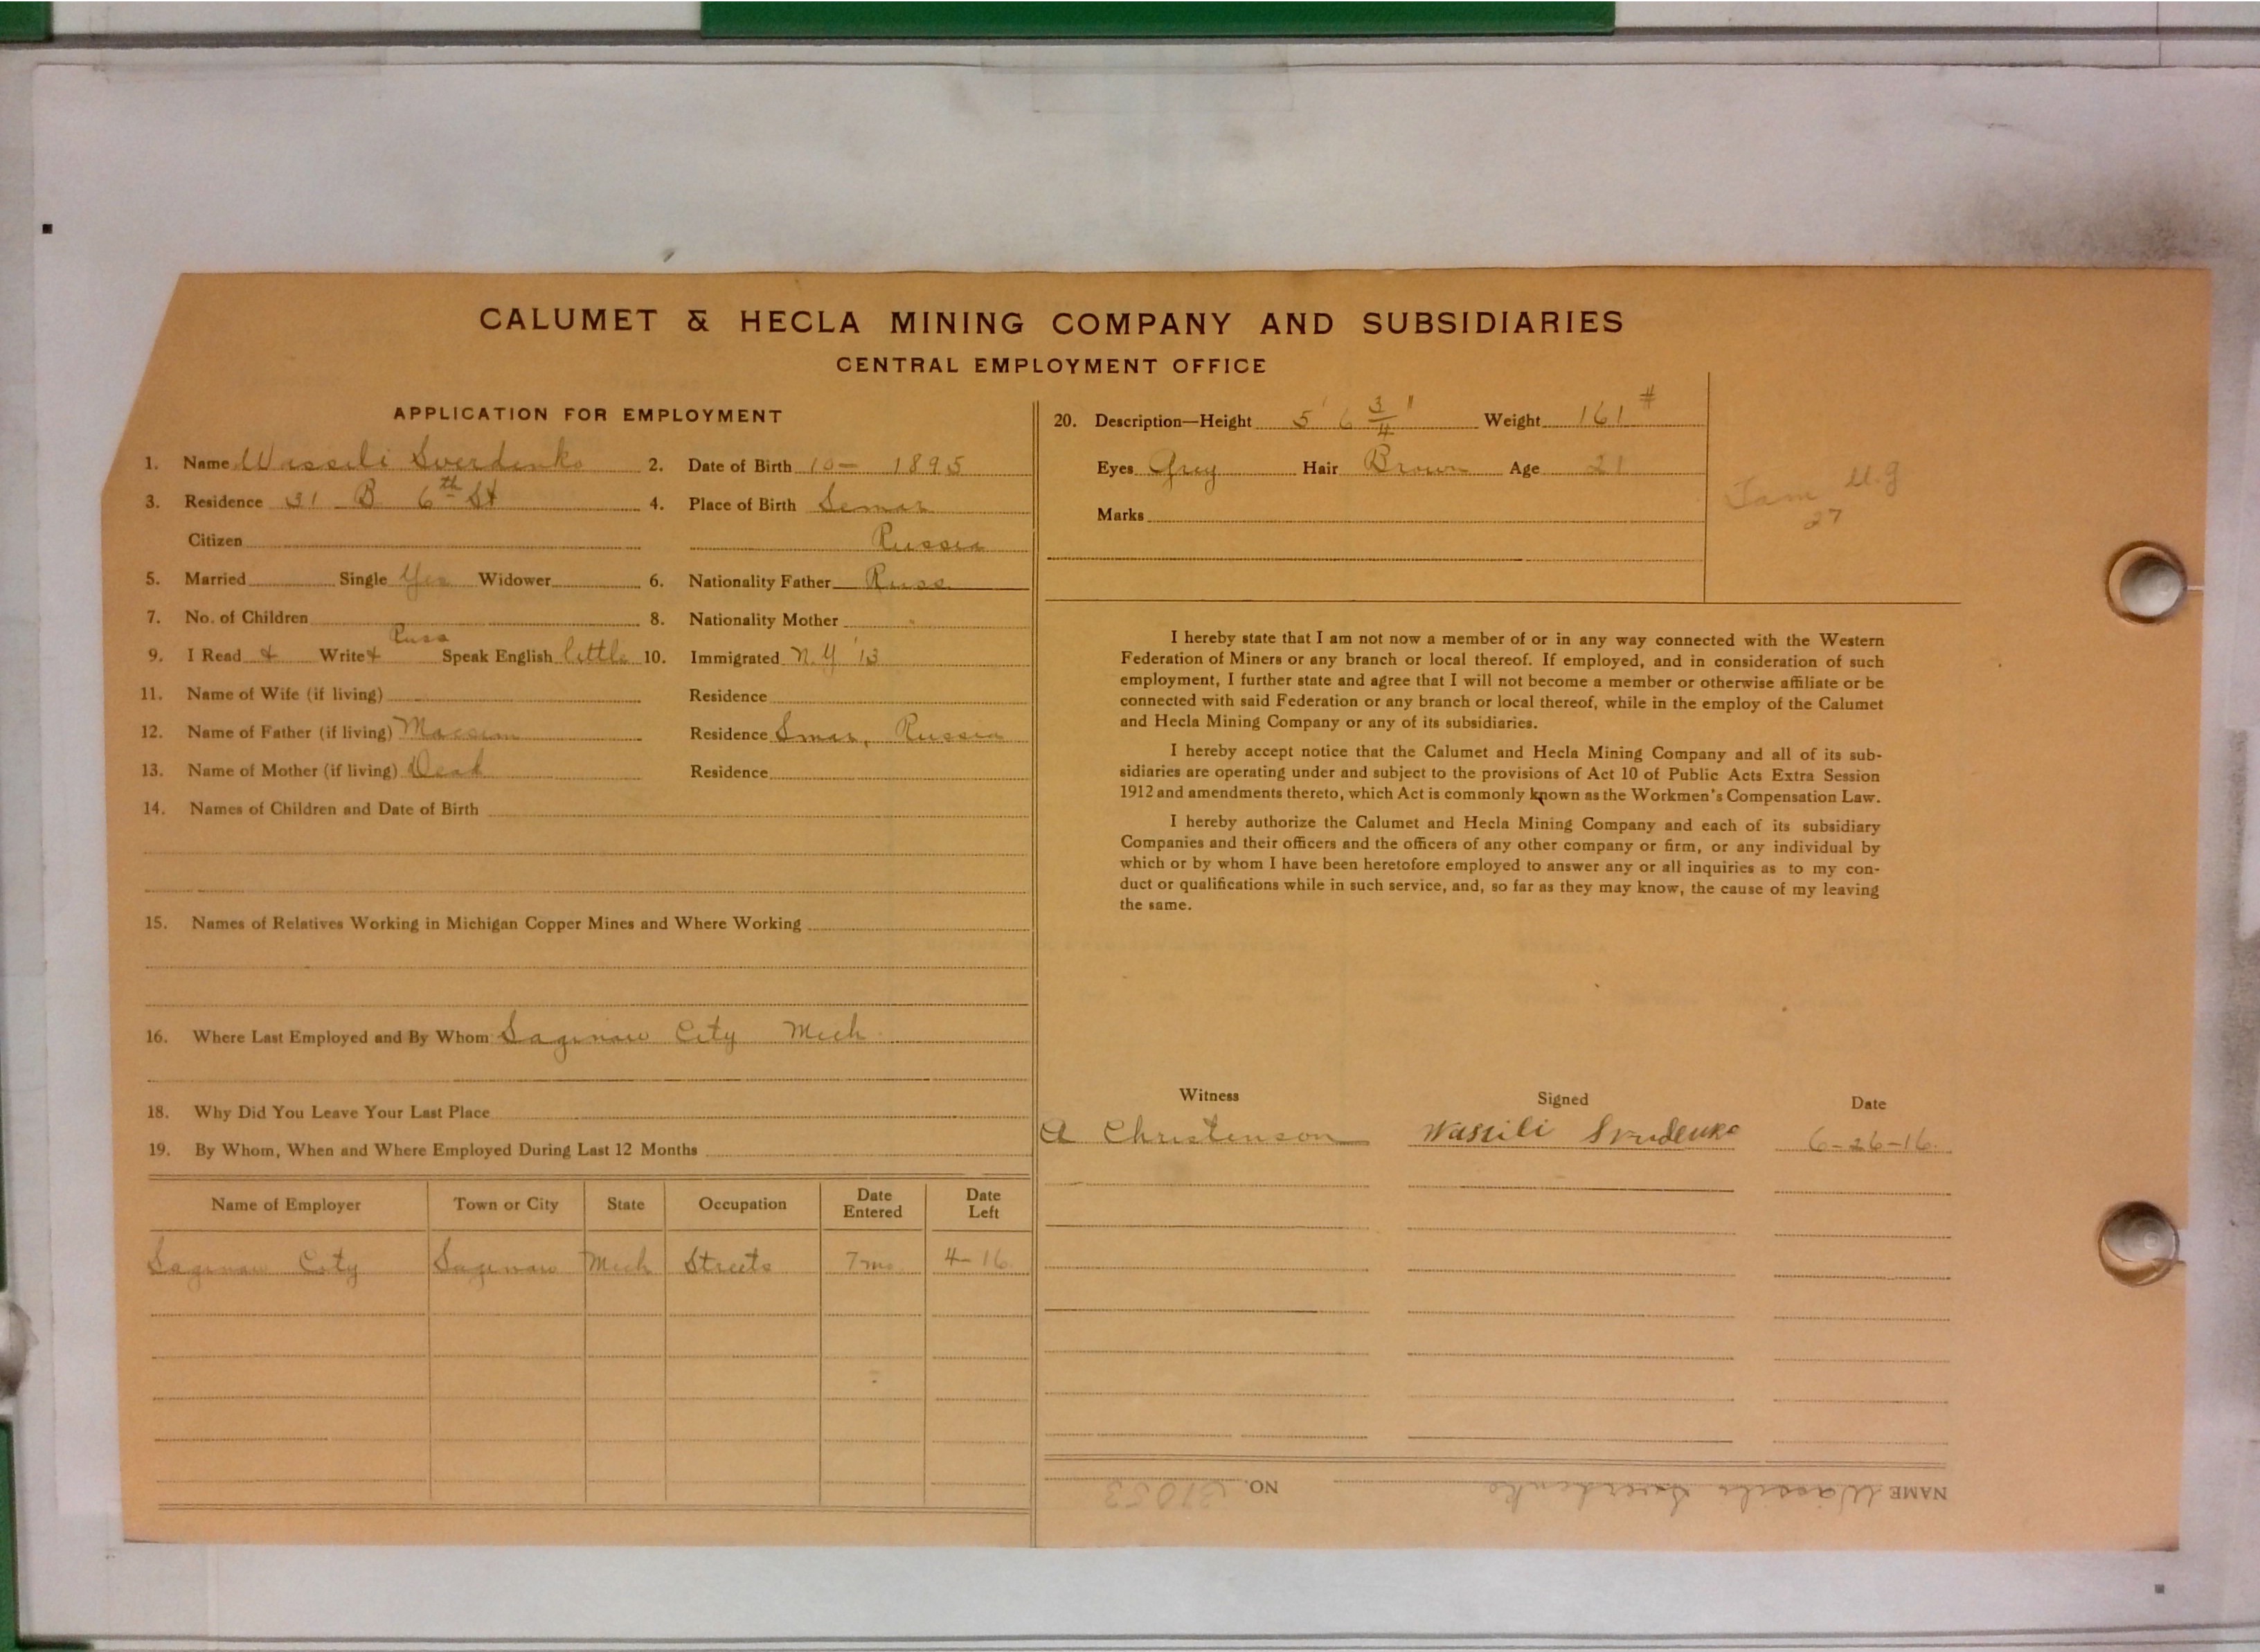 CALUMET & HECLA MINING COMPANY AND SUBSIDIARIES
CENTRAL EMPLOYMENT OFFICE
APPLICATION FOR EMPLOYMENT
1. Name Wassili Swerdenko 2. Date of Birth 10- 1895
3. Residence 31 B 6th St 4. Place of Birth Semar
Citizen Russia
5. Married Single Yes Widower 6. Nationality Father Russ
7. No. of Children 8. Nationality Mother "
Russ
9. I Read & Write & Speak English little 10. Immigrated N.Y '13
11. Name of Wife (if living) Residence
12. Name of Father (if living) Residence Smar, Russia
13. Name of Mother (if living) Dead Residence
14. Names of Children and Date of Birth
15. Names of Relatives Working in Michigan Copper Mines and Where Working
16. Where Last Employed and By Whom Saginaw City Mich
18. Why Did You Leave Your Last Place
19. By Whom, When and Where Employed During Last 12 Months
Name of Employer Town or City State Occupation Date Entered Date Left
Saginaw City Saginaw Mich Streets 7 mo 4-16
20. Description—Height 5' 6 3/4" Weight 161 #
Eyes Grey Hair Brown Age 21
Marks
Tam U.g
27
I hereby state that I am not now a member of or in any way connected with the Western
Federation of Miners or any branch or local thereof. If employed, and in consideration of such
employment, I further state and agree that I will not become a member or otherwise affiliate or be
connected with said Federation or any branch or local thereof, while in the employ of the Calumet
and Hecla Mining Company or any of its subsidiaries.
I hereby accept notice that the Calumet and Hecla Mining Company and all of its sub-
sidiaries are operating under and subject to the provisions of Act 10 of Public Acts Extra Session
1912 and amendments thereto, which Act is commonly known as the Workmen's Compensation Law.
I hereby authorize the Calumet and Hecla Mining Company and each of its subsidiary
Companies and their officers and the officers of any other company or firm, or any individual by
which or by whom I have been heretofore employed to answer any or all inquiries as to my con-
duct or qualifications while in such service, and, so far as they may know, the cause of my leaving
the same.
Witness Signed Date
A Christenson Wassili 6-26-16.
NAME Wassili Swerdenko NO. 31053